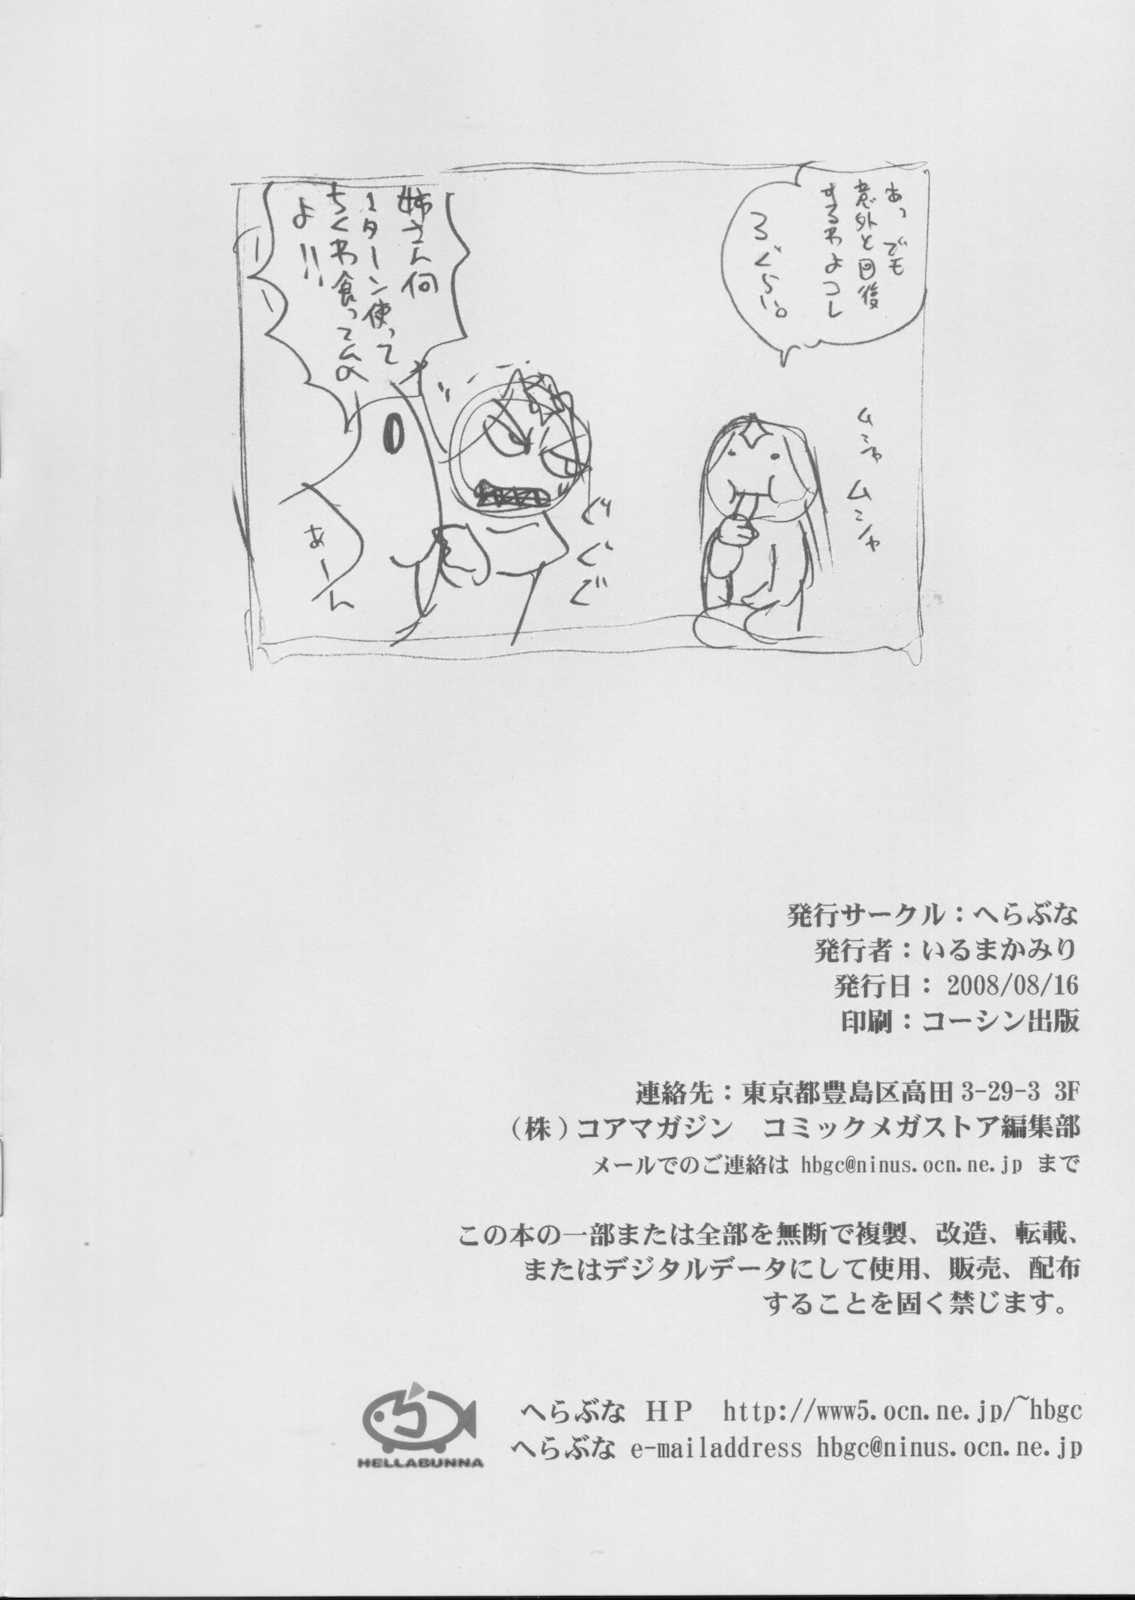 あっでも
意外と回復
するわよコレ
3ぐらい。
ムシャ
ムシャ
姉さん何
1ターン使って
ちくわ食ってんの
よ!!
ぐぐぐ
あーん
発行サークル：へらぶな
発行者：いるまかみり
発行日： 2008/08/16
印刷：コーシン出版
連絡先：東京都豊島区高田 3-29-3 3F
（株）コアマガジン　コミックメガストア編集部
メールでのご連絡は hbgc@ninus.ocn.ne.jp まで
この本の一部または全部を無断で複製、改造、転載、
またはデジタルデータにして使用、販売、配布
することを固く禁じます。
へらぶな ＨＰ　http://www5.ocn.ne.jp/~hbgc
へらぶな e-mailaddress hbgc@ninus.ocn.ne.jp
HELLABUNNA